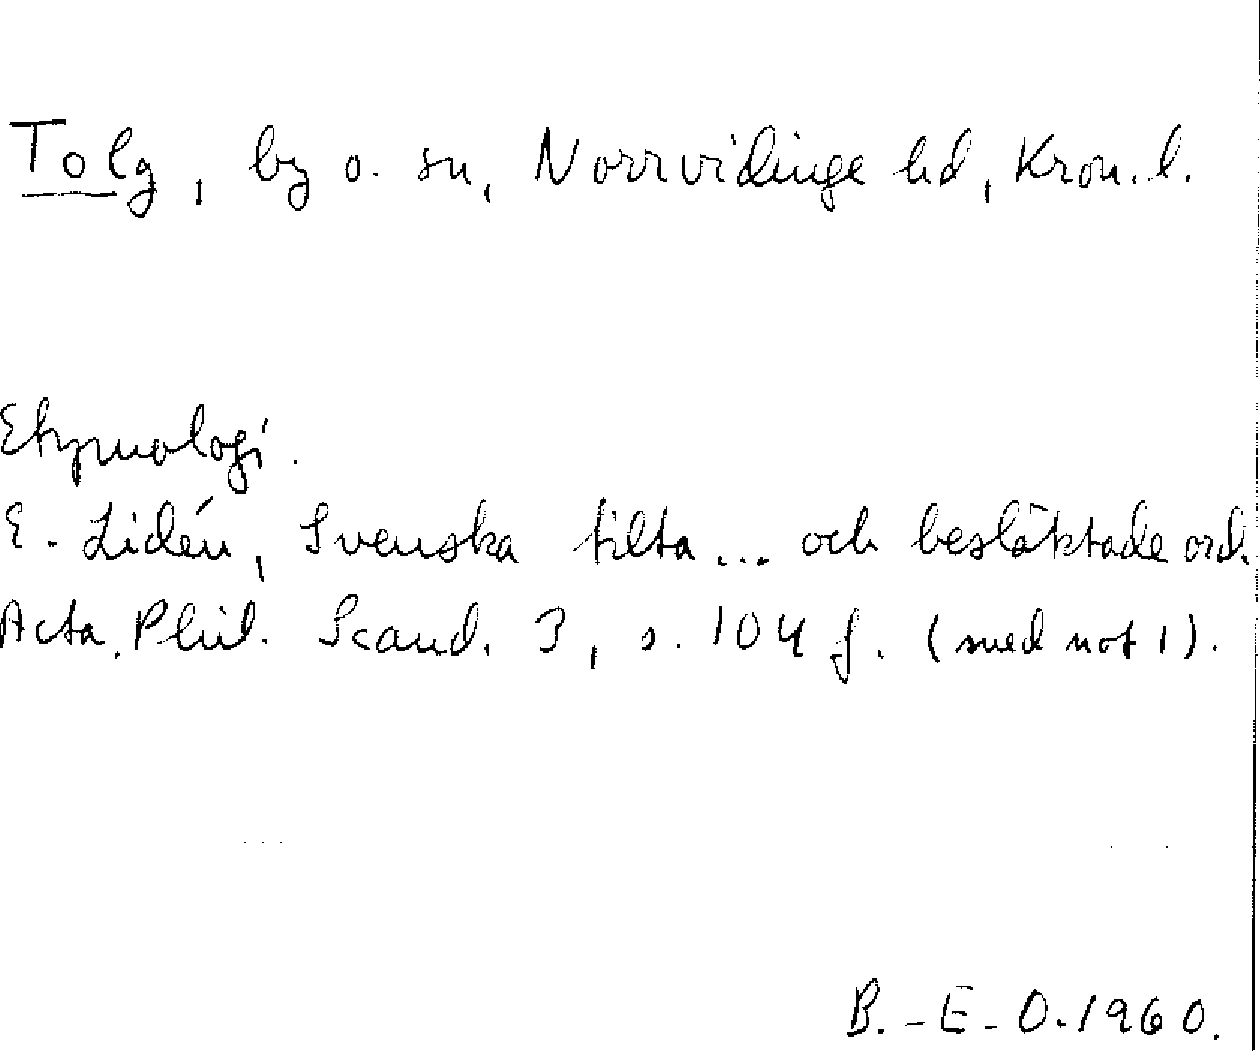 Tolg, by o. sn, Norrvidinge hd, Kron. l.
Etymologi.
E. Lidén, Svenska tilta... och besläktade ord.
Acta Phil. Scand. 3, s. 104 f. (med not 1).
B.-E-O. 1960.